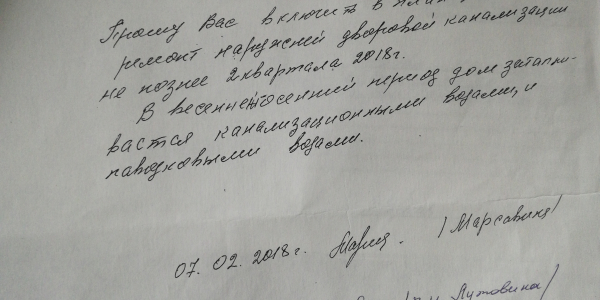 Прошу Вас включить в план
ремонт наружней дворовой канализации
не позднее 2 квартала 2018г.
В весенне-осенний период дом затапли-
вается канализационными водами, и
паводковыми водами.
07. 02. 2018г. /Марсавина/
Лутовина/